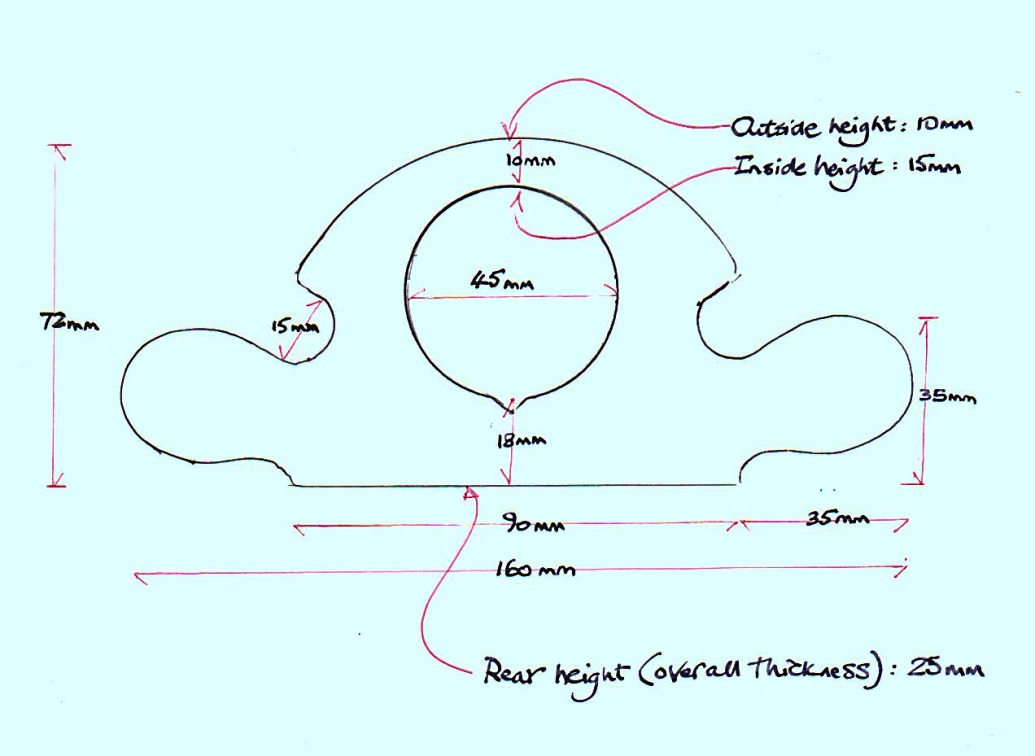 Outside height: 10mm
10mm
Inside height: 15mm
45mm
15mm
72mm
35mm
18mm
90mm
35mm
160mm
Rear height (overall thickness): 25mm